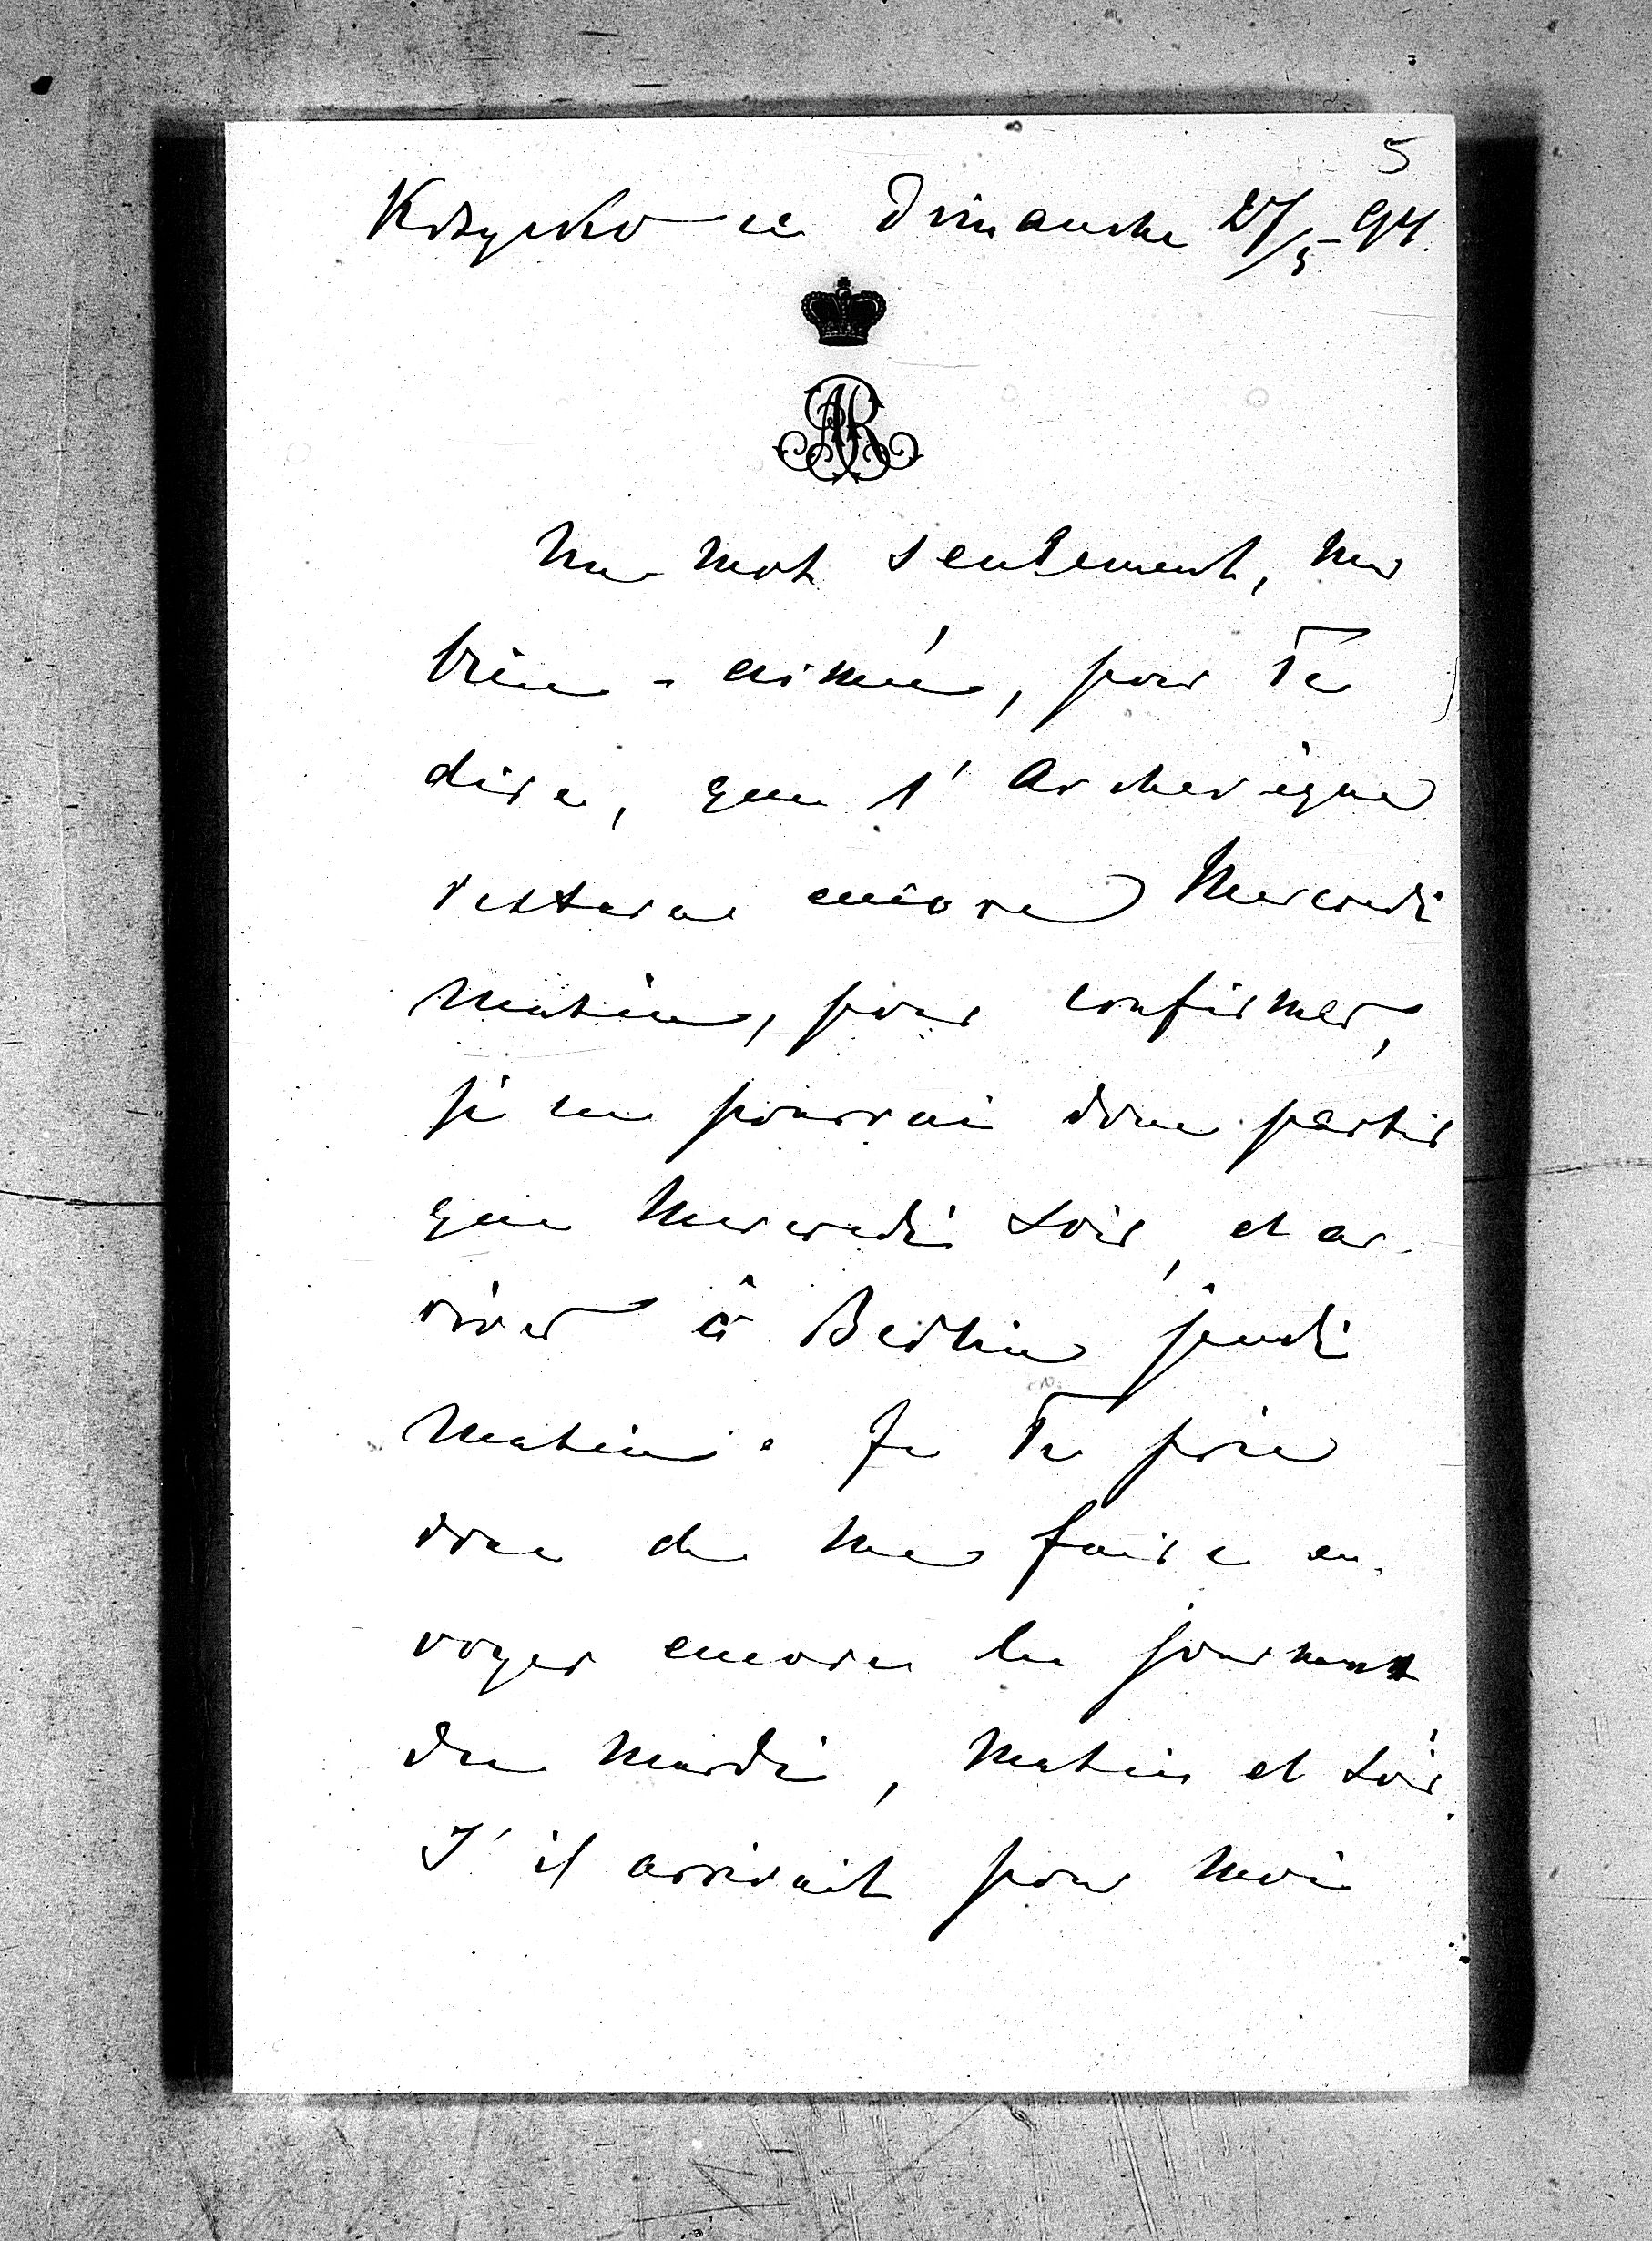 5
ce Dimanche 27/5 94.
AR
Un mot seulement, ma
bien-aimée, pour Te
dire, que l'Archevêque
restera encore Mercredi
matin, pour confirmer,
je ne pourrai donc partir
que Mercredi soir, et ar-
river à Berlin jeudi
matin. Je Te prie
donc de me faire en-
voyer encore les journaux
du Mardi, matin et soir.
S'il arrivait pour moi